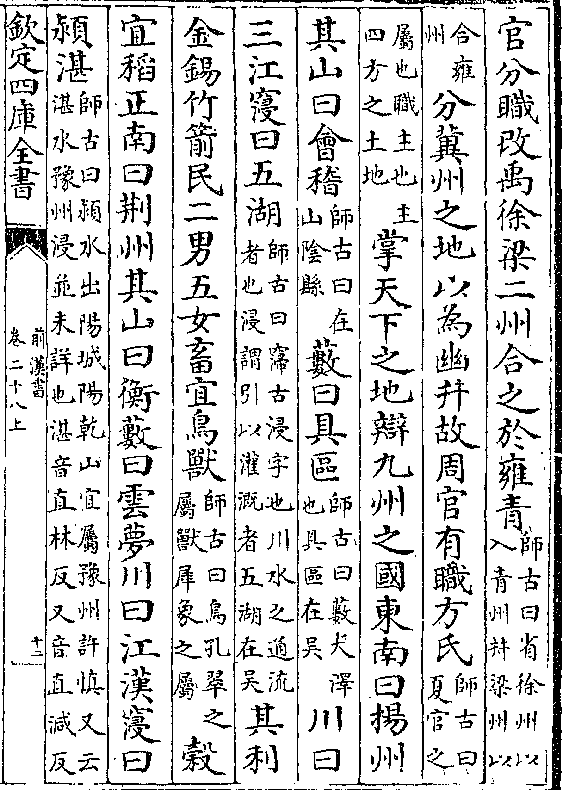 官分職改禹徐梁二州合之於雍青師古曰省徐州以入青州并梁州以
合雍州分冀州之地以為幽并故周官有職方氏師古曰夏官之
屬也職主也主四方之土地掌天下之地辯九州之國東南曰揚州
其山曰會稽師古曰在山陰縣藪曰具區師古曰藪大澤也具區在吳川曰
三江寖曰五湖師古曰寖古浸字也川水之通流者也浸謂引以灌溉者五湖在吳其利
金錫竹箭民二男五女畜宜鳥獸師古曰鳥孔翠之屬獸犀象之屬榖
宜稻正南曰荆州其山曰衡藪曰雲夢川曰江漢寖曰
潁湛師古曰潁水出陽城陽乾山宜屬豫州許慎又云湛水豫州浸並未詳也湛音直林反又音直減反
欽定四庫全書
前漢書
卷二十八上
十二